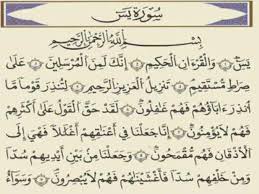 سُورَةُ يسٓ
بِسْمِ ٱللَّهِ ٱلرَّحْمَٰنِ ٱلرَّحِيمِ
يسٓ ١ وَٱلْقُرْءَانِ ٱلْحَكِيمِ ٢ إِنَّكَ لَمِنَ ٱلْمُرْسَلِينَ ٣ عَلَىٰ
صِرَٰطٍ مُّسْتَقِيمٍ ٤ تَنزِيلَ ٱلْعَزِيزِ ٱلرَّحِيمِ ٥ لِتُنذِرَ قَوْمًا مَّآ
أُنذِرَ ءَابَآؤُهُمْ فَهُمْ غَٰفِلُونَ ٦ لَقَدْ حَقَّ ٱلْقَوْلُ عَلَىٰٓ أَكْثَرِهِمْ
فَهُمْ لَا يُؤْمِنُونَ ٧ إِنَّا جَعَلْنَا فِىٓ أَعْنَٰقِهِمْ أَغْلَٰلًا فَهِىَ إِلَى
ٱلْأَذْقَانِ فَهُم مُّقْمَحُونَ ٨ وَجَعَلْنَا مِنۢ بَيْنِ أَيْدِيهِمْ سَدًّا
وَمِنْ خَلْفِهِمْ سَدًّا فَأَغْشَيْنَٰهُمْ فَهُمْ لَا يُبْصِرُونَ ٩ وَسَوَآءٌ